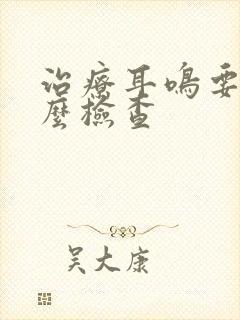 治療耳鳴要
麼檢查
吴大康